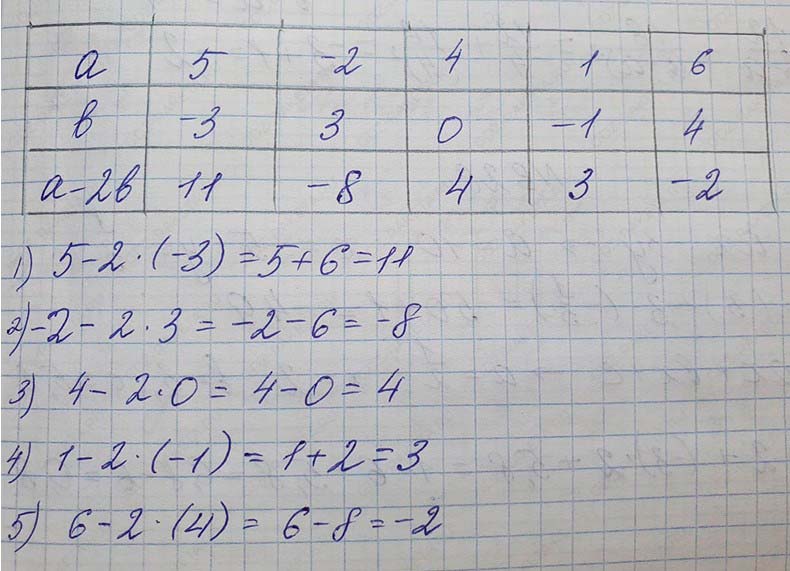 a 5 -2 4 1 6
в -3 3 0 -1 4
a-2в 11 -8 4 3 -2
1) 5-2·(-3)=5+6=11
2) -2-2·3=-2-6=-8
3) 4-2·0=4-0=4
4) 1-2·(-1)=1+2=3
5) 6-2·(4)=6-8=-2